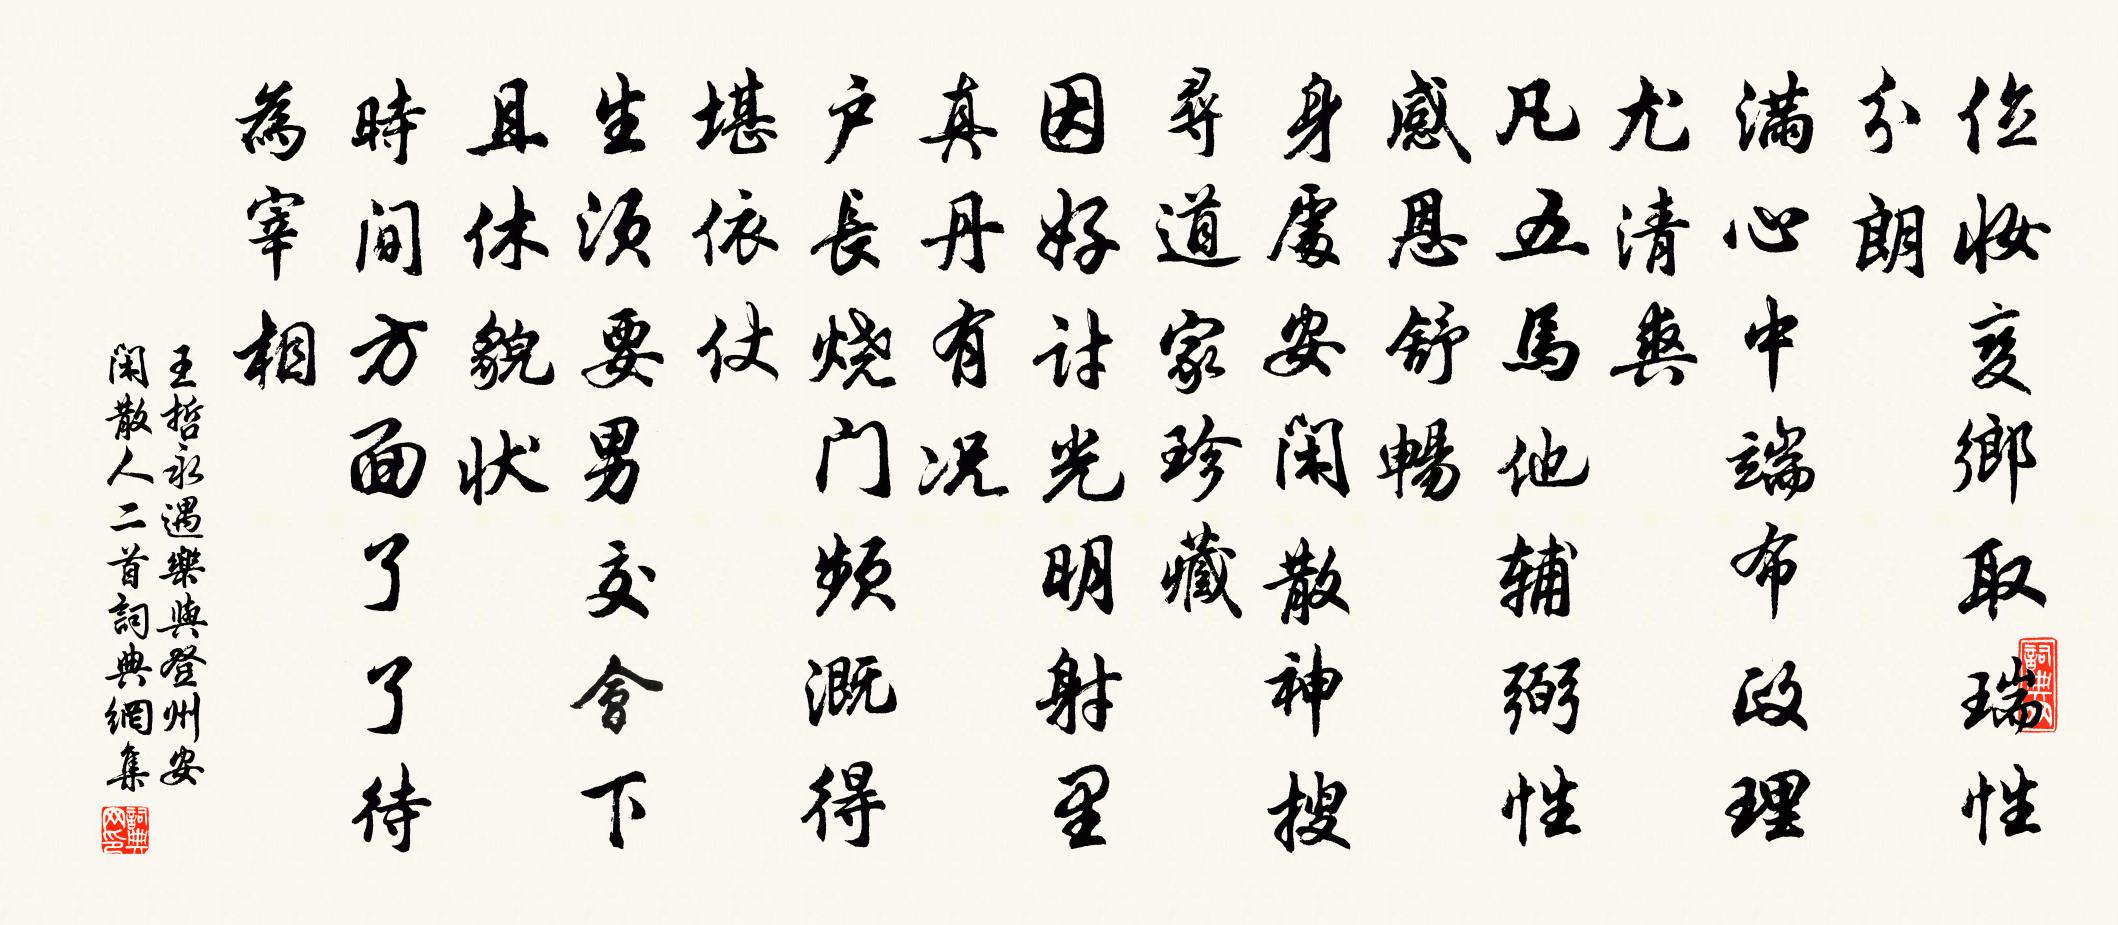 俭妆变鄉取瑞性
分朗
满心中端布政理
尤清爽
凡五馬他辅弼性
感恩舒暢
身處安閑散神搜
尋道家珍藏
因好討光明射里
真丹有况
户長烧门频溉得
堪依仗
生须要男交會下
且休貌状
時间方面了了待
為宰相
王哲永遇樂與登州安
閑散人二首詞典網集
詞典网印